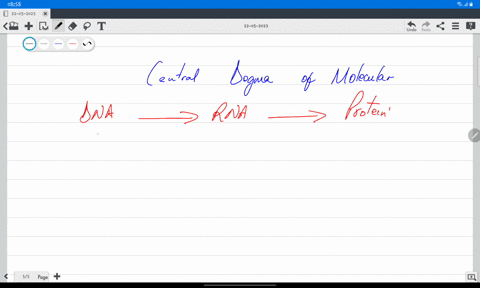 08:58
22-05-2023
22-05-2023
Undo Redo
Central Dogma of Molecular
DNA → RNA → Protein
1/1 Page